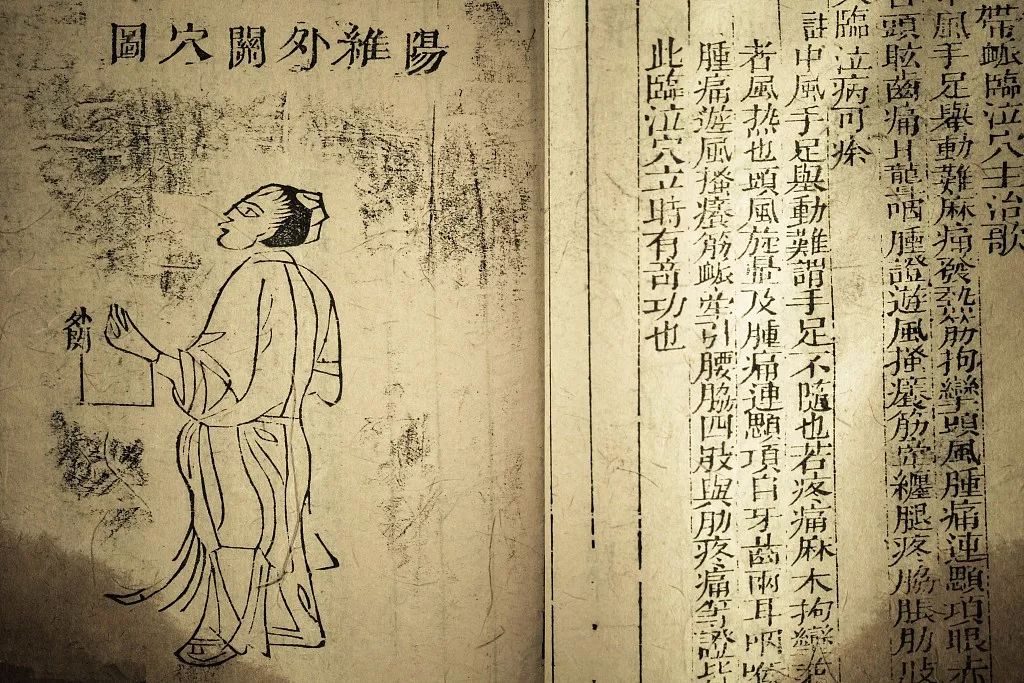 帶䘑臨泣穴主治歌
中風手足舉動難麻痛發熱筋拘攣頭風腫痛連顋項眼赤
頭眩齒痛耳聾咽腫證遊風搔癢筋牽纏腿疼脇脹肋肢
臨泣病可痊
註中風手足舉動難謂手足不隨也若疼痛麻木拘攣
者風熱也頭風旋暈及腫痛連顋項目牙齒兩耳咽喉
腫痛遊風搔癢筋䘑牽引腰脇四肢與肋疼痛等證皆
此臨泣穴立時有奇功也
陽維外關穴圖
外關